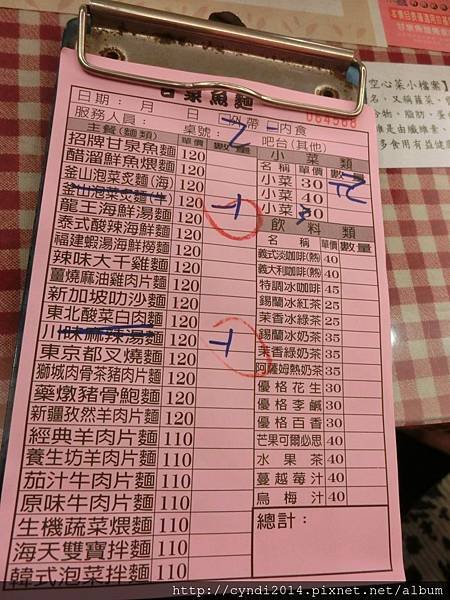 甘泉魚麵
064568
日期： 月 日 外帶 內食
服務人員： 桌號：
主餐(麵類) 單價 數量
招牌甘泉魚麵 120
醋溜鮮魚煨麵 120
釜山泡菜炙麵(海) 120
釜山泡菜炙麵(牛) 120
龍王海鮮湯麵 120
泰式酸辣海鮮麵 120
福建蝦湯海鮮撈麵 120
辣味大千雞麵 120
薑燒麻油雞肉片麵 120
新加坡叻沙麵 120
東北酸菜白肉麵 120
川味麻辣湯麵 120
東京都叉燒麵 120
獅城肉骨茶豬肉片麵 120
藥燉豬骨鮑麵 120
新疆孜然羊肉片麵 120
經典羊肉片麵 110
養生坊羊肉片麵 110
茄汁牛肉片麵 110
原味牛肉片麵 110
生機蔬菜煨麵 110
海天雙寶拌麵 110
韓式泡菜拌麵 110
吧台(其他)
小菜類
名稱 單價 數量
小菜 30
小菜 40
小菜 50
飲料類
名稱 單價 數量
義式淡咖啡(熱) 40
義大利咖啡(熱) 45
特調冰咖啡 45
錫蘭冰紅茶 25
茉香冰綠茶 25
錫蘭冰奶茶 35
茉香綠奶茶 35
阿薩姆熱奶茶 35
優格花生 30
優格李鹹 30
優格百香 30
芒果可爾必思 40
水果茶 40
蔓越莓汁 40
烏梅汁 40
總計：
空心菜小檔案】
名，又稱蕹菜，
合物、脂肪、蛋
維是由纖維素、
多食用有益健康
http://cyndi2014.pixnet.net/album